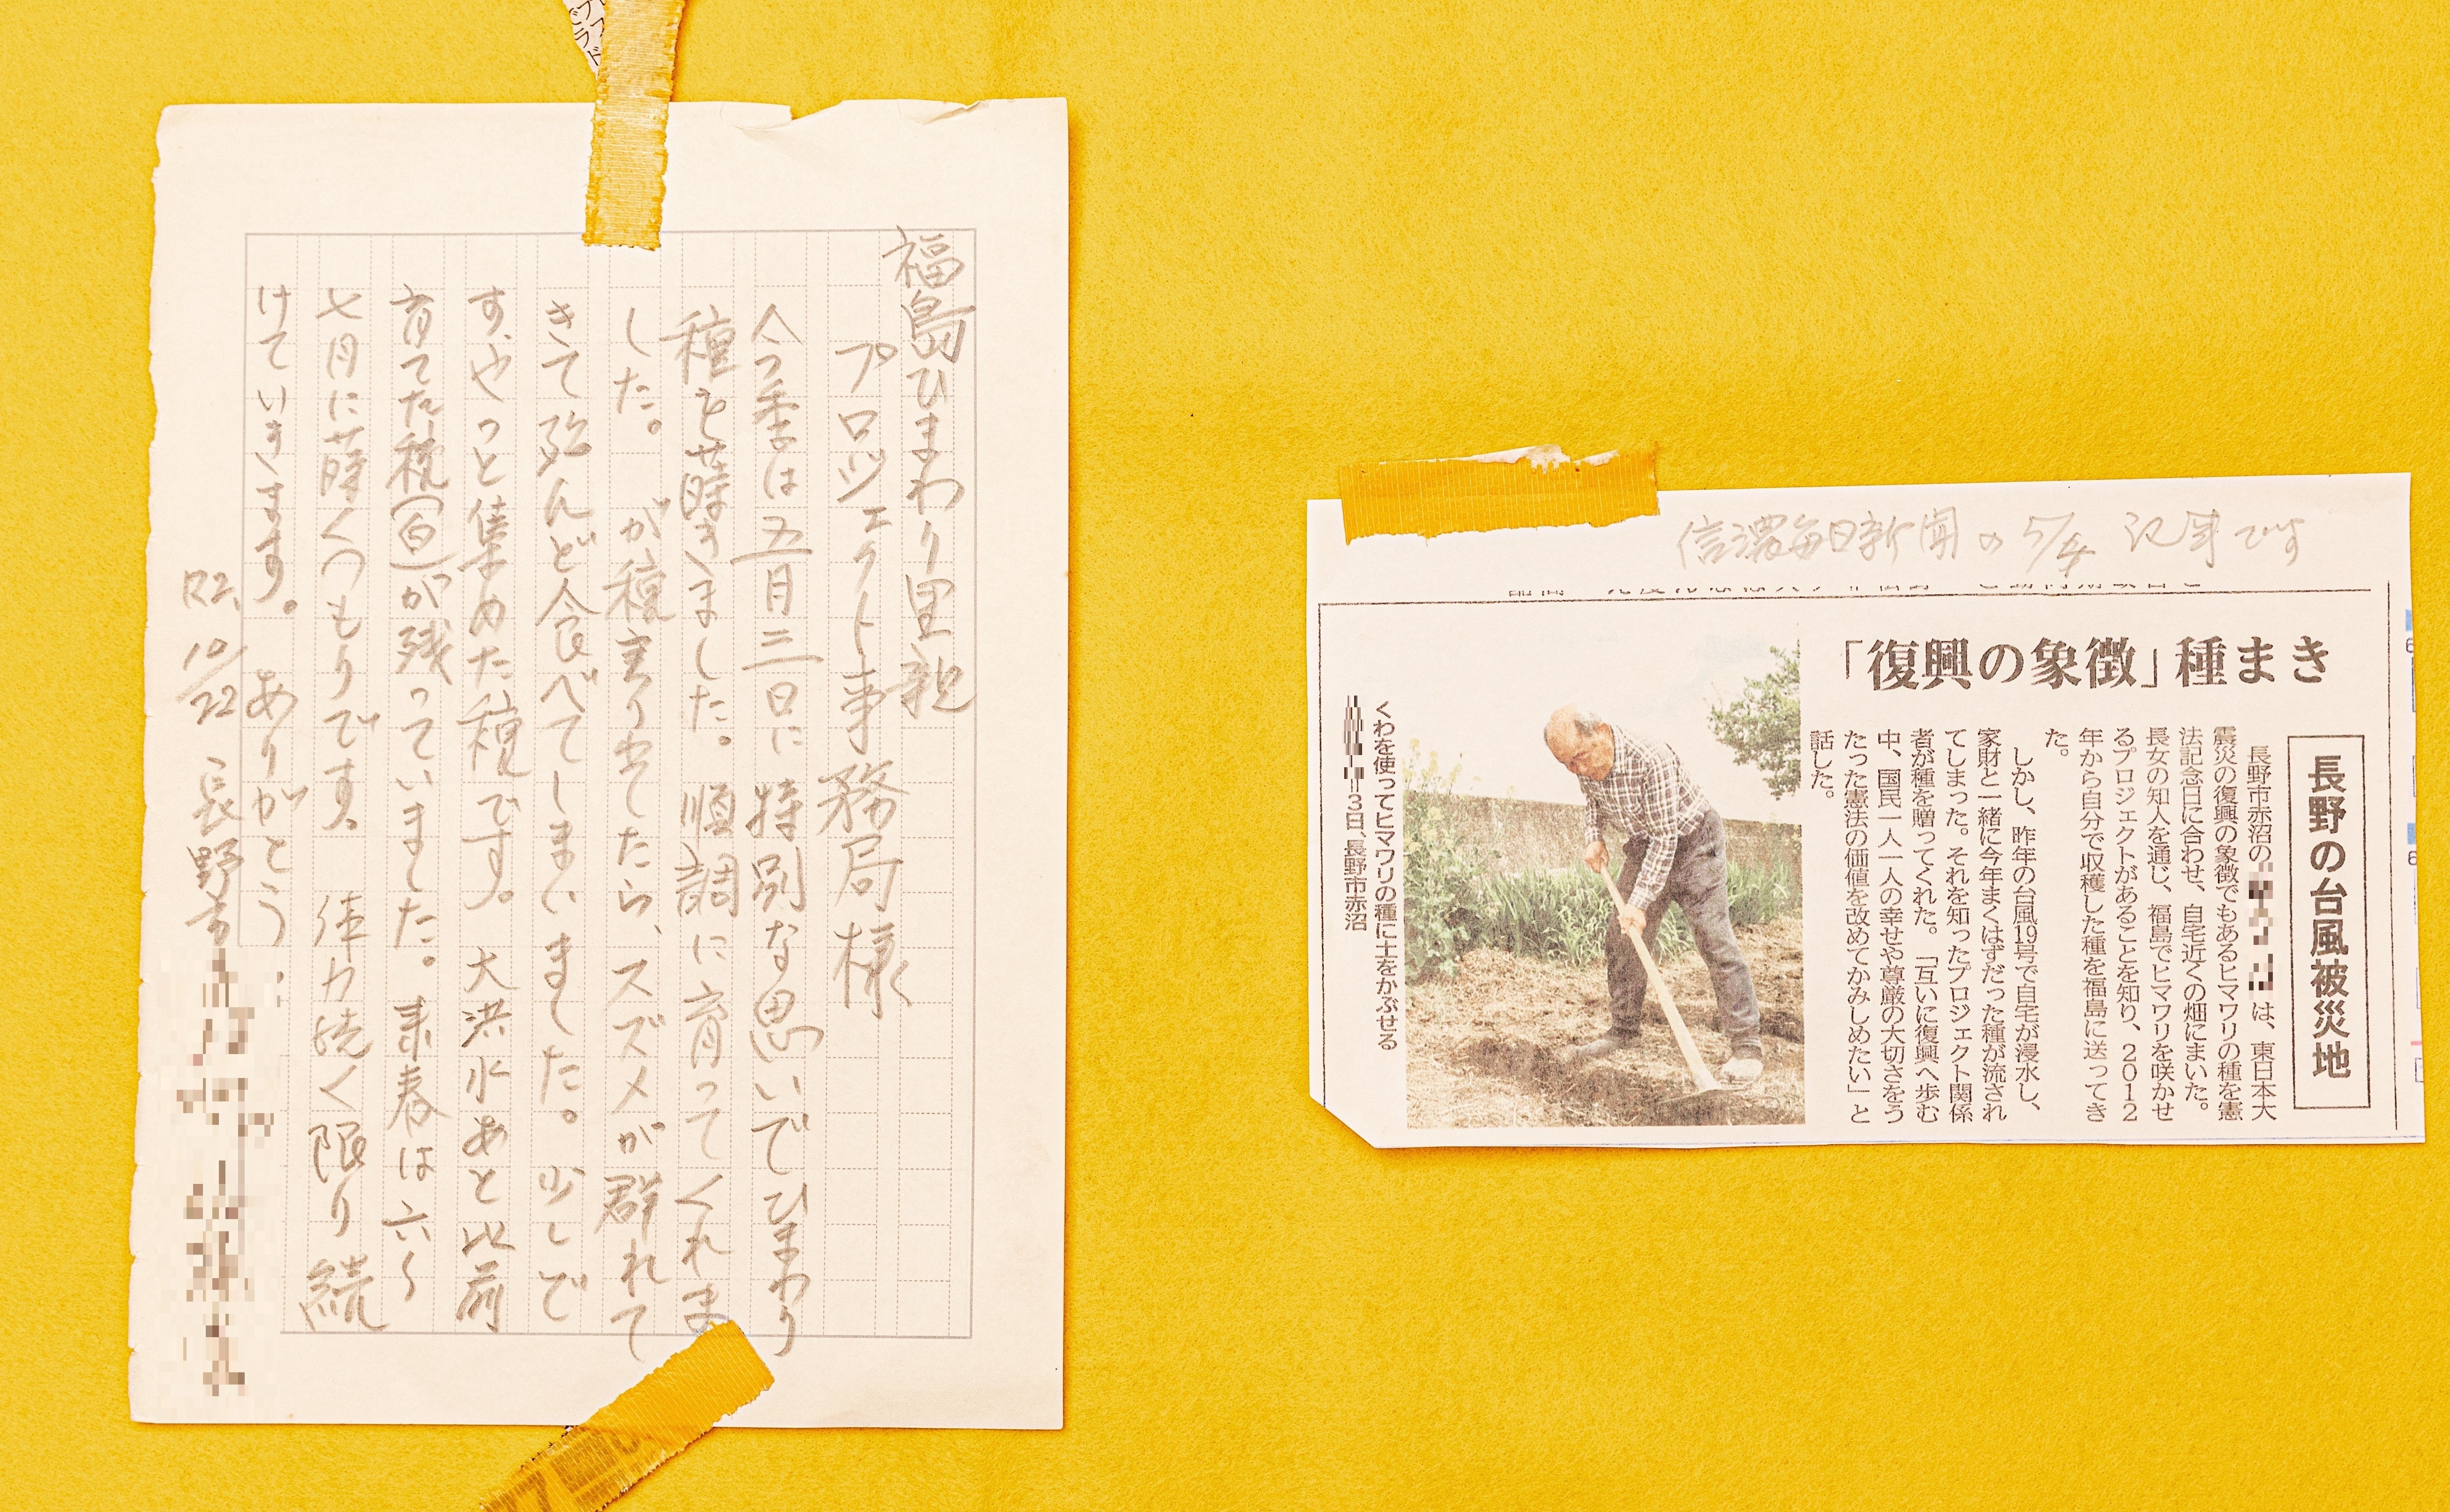 福島ひまわり里親
プロジェクト事務局様
今季は五月三日に特別な思いでひまわり
種を蒔きました。順調に育ってくれま
した。が種実り出したら、スズメが群れて
きて殆んど食べてしまいました。少しで
す、やっと集めた種です。大洪水あと以前
育てた種(白)が残っていました。来春は六〜
七月に蒔くつもりです。体力続く限り続
けていきます。ありがとう。
R2.10/22 長野市
信濃毎日新聞の5/4記事です
「復興の象徴」種まき
長野の台風被災地
長野市赤沼の は、東日本大
震災の復興の象徴でもあるヒマワリの種を憲
法記念日に合わせ、自宅近くの畑にまいた。
長女の知人を通じ、福島でヒマワリを咲かせ
るプロジェクトがあることを知り、2012
年から自分で収穫した種を福島に送ってき
た。
しかし、昨年の台風19号で自宅が浸水し、
家財と一緒に今年まくはずだった種が流され
てしまった。それを知ったプロジェクト関係
者が種を贈ってくれた。「互いに復興へ歩む
中、国民一人一人の幸せや尊厳の大切さをう
たった憲法の価値を改めてかみしめたい」と
話した。
くわを使ってヒマワリの種に土をかぶせる
3日、長野市赤沼